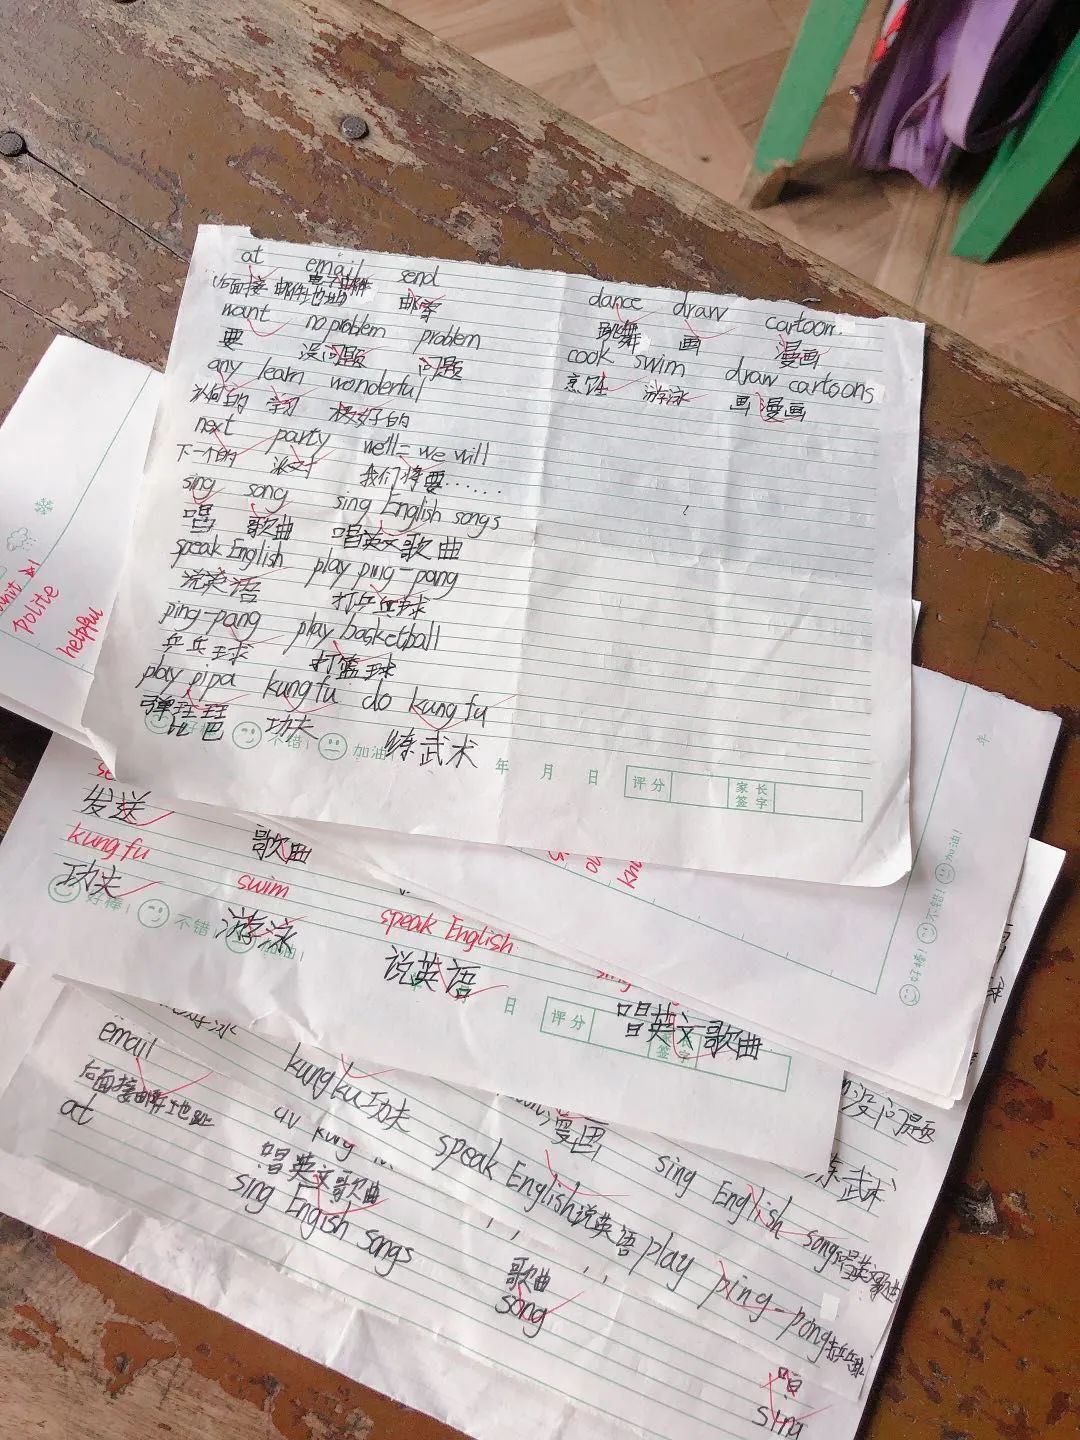 at email send
后面接 邮件地址 电子邮件 邮寄
want no problem problem
要 没问题 问题
any learn wonderful
学习 极好的
next party we'll = we will
下一个的 派对 我们将要......
sing song sing English songs
唱 歌曲 唱英文歌曲
speak English play ping-pang
说英语 打乒乓球
ping-pang play basketball
乒乓球 打篮球
play pipa kung fu do kung fu
弹琵琶 功夫 练武术
好棒! 不错! 加油!
年 月 日 评分 家长签字
dance draw cartoon
跳舞 画 漫画
cook swim draw cartoons
烹饪 游泳 画漫画
polite
helpful
发送 歌曲
kung fu swim speak English sing
功夫 游泳 说英语 唱英文歌曲
好棒! 不错 加油!
日 评分 签字
年
好棒! 不错! 加油!
email
后面接邮件地址
at
kung ku 功夫
唱英文歌曲
sing English songs
speak English 说英语
漫画
sing English songs 唱英文歌曲
play ping-pong
歌曲
song
没问题
练武术
唱
sing